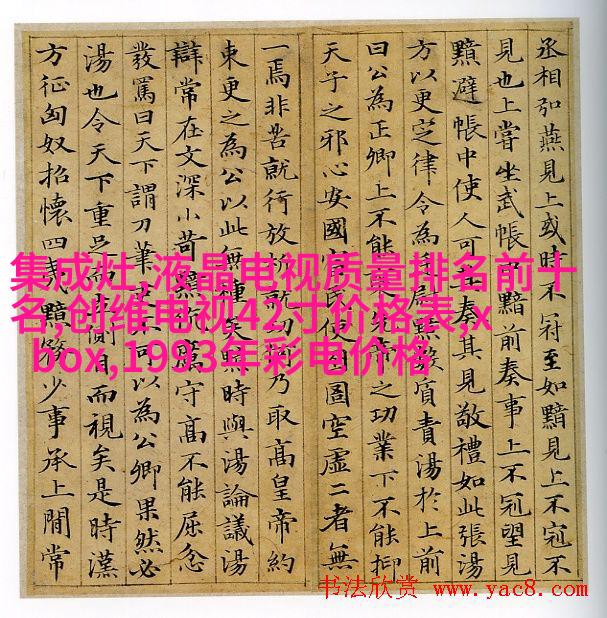 丞相弘燕見上或時不冠至如黯見上不冠不
見也上嘗坐武帳黯前奏事上不冠望見
黯避帳中使人可其奏其見敬禮如此張湯
方以更定律令為廷尉黯數質責湯於上前
曰公為正卿上不能先帝之功業下不能抑
天子之邪心安國富民使囹圄空虛二者無
一焉非苦就行放析就功何乃取高皇帝約
束更之為公以此無種矣黯時與湯論議湯
辯常在文深小苛黯伉厲守高不能屈忿
發罵曰天下謂刀筆吏不可以為公卿果然必
湯也令天下重足而立側目而視矣是時漢
方征匈奴招懷四夷黯務少事承上間常
集成灶,液晶电视质量排名前十
名,创维电视42寸价格表,x
box,1993年彩电价格
书法欣赏 www.yac8.com